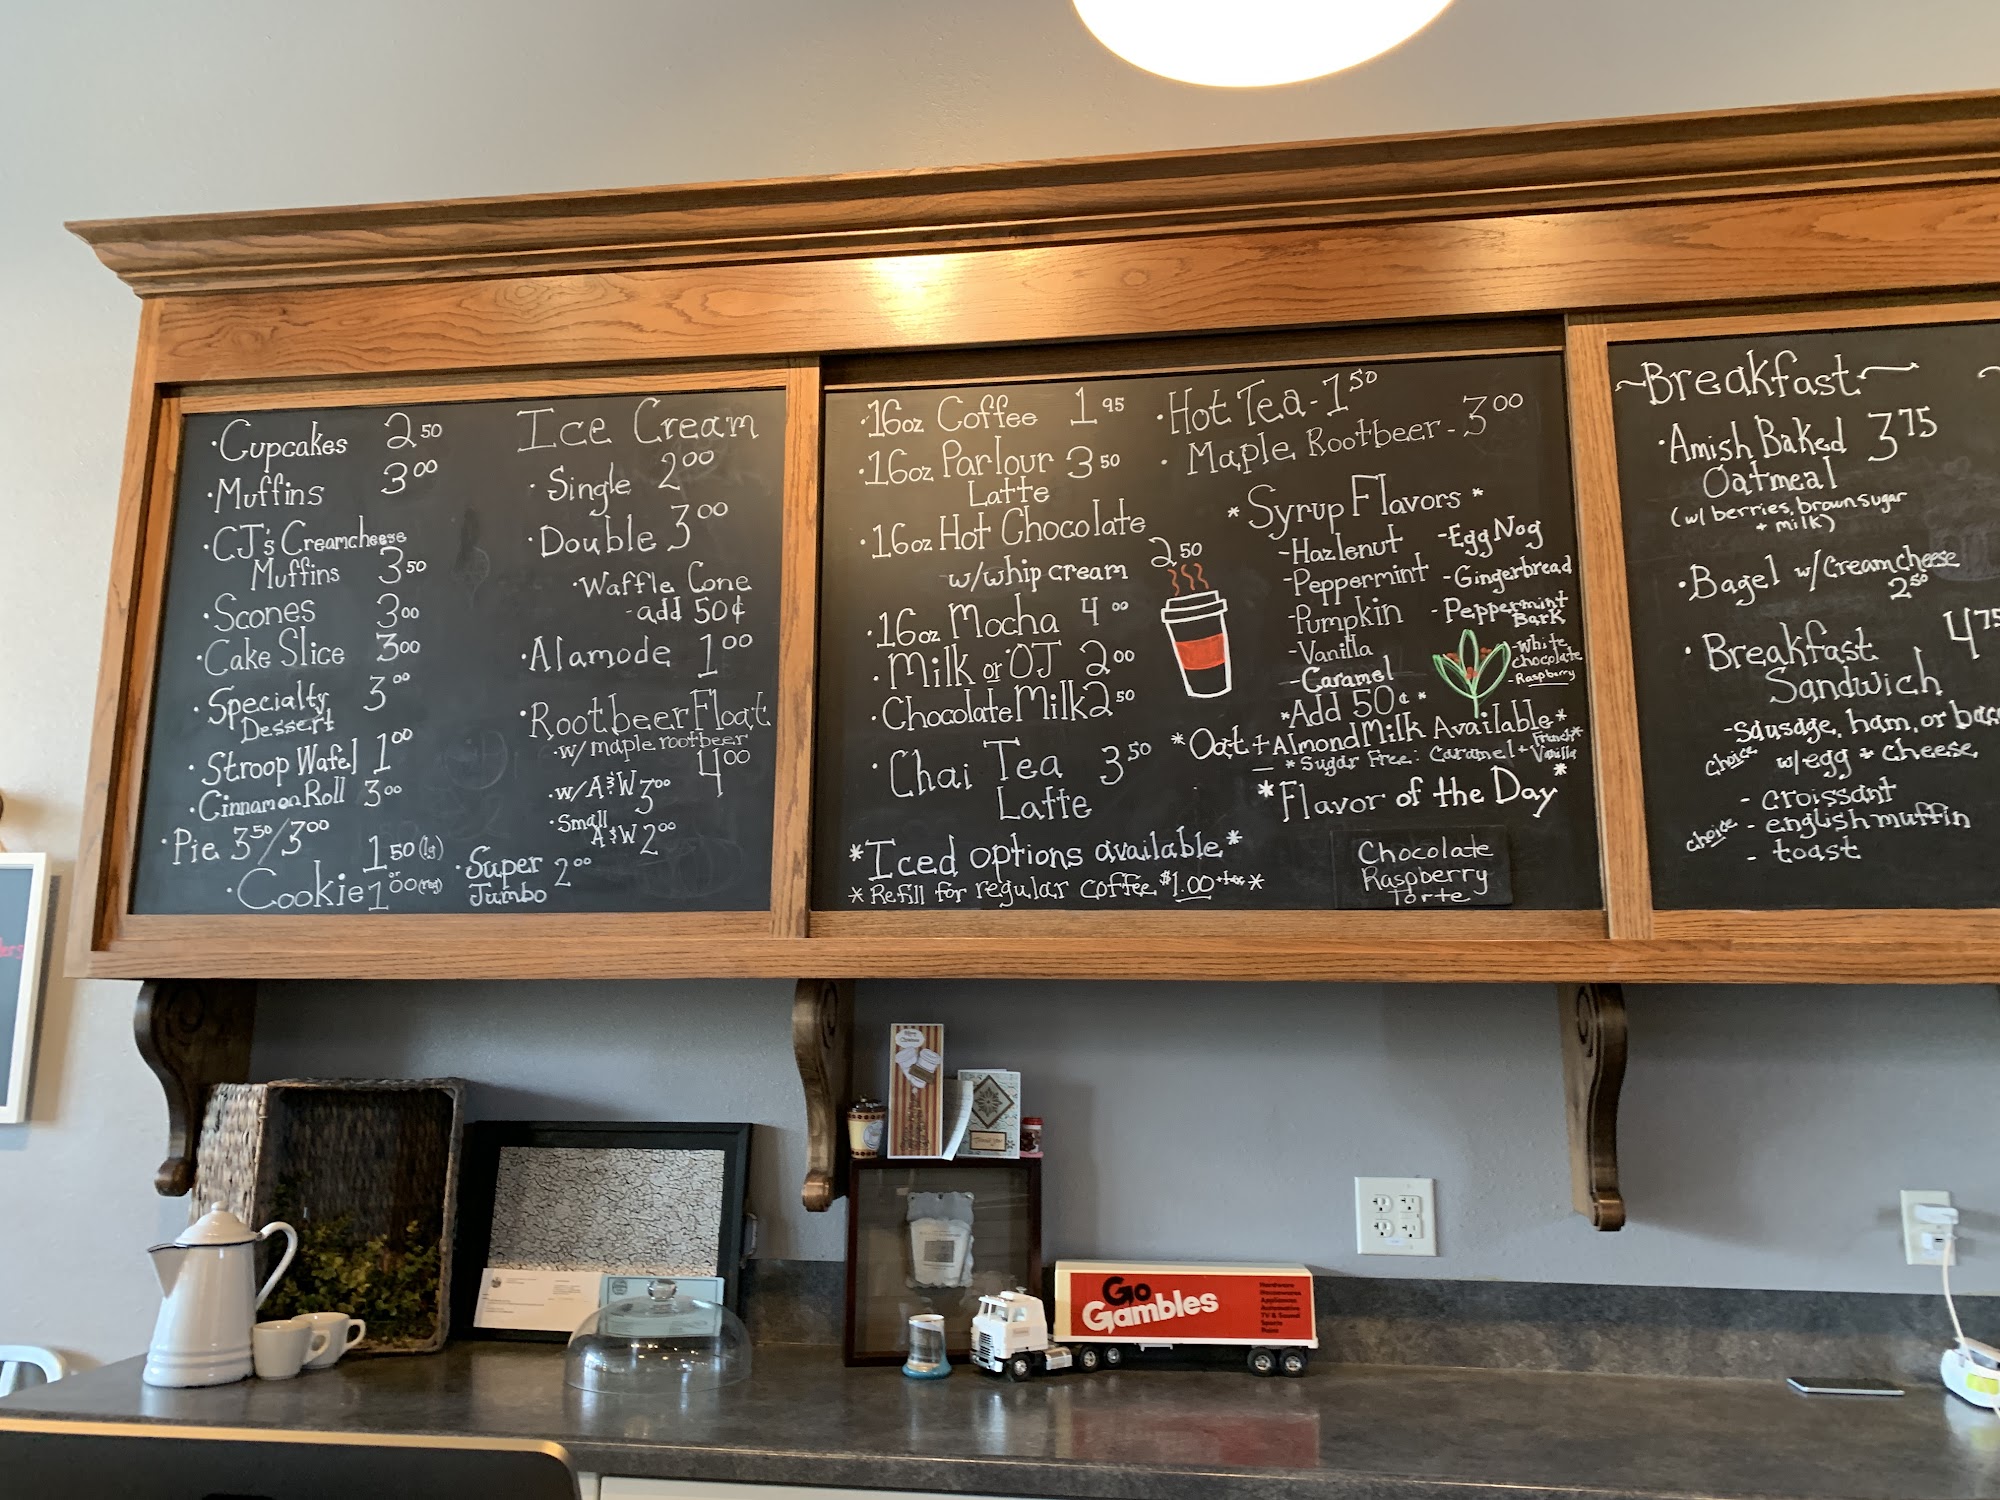 ·Cupcakes 2 50
·Muffins 3 00
·CJ's Creamcheese
Muffins 3 50
·Scones 3 00
·Cake Slice 3 00
·Specialty 3 00
Dessert
·Stroop Wafel 1 00
·Cinnamon Roll 3 00
·Pie 3 50/3 00
·Cookie 1 50 (lg)
or
1 00 (reg)
·Super 2 00
Jumbo
Ice Cream
·Single 2 00
·Double 3 00
·Waffle Cone
-add 50¢
·Alamode 1 00
·Rootbeer Float
·w/ maple rootbeer
4 00
·w/ A&W 3 00
·Small
A&W 2 00
·16oz Coffee 1 95
·16oz Parlour 3 50
Latte
·16oz Hot Chocolate
w/whip cream 2 50
·16oz Mocha 4 00
·Milk or OJ 2 00
·Chocolate Milk 2 50
·Chai Tea 3 50
Latte
*Iced options available*
*Refill for regular coffee $1.00 +tax*
·Hot Tea - 1 50
·Maple Rootbeer - 3 00
*Syrup Flavors*
-Hazlenut
-Peppermint
-Pumpkin
-Vanilla
-Caramel
-Egg Nog
-Gingerbread
-Peppermint
Bark
-White
chocolate
-Raspberry
*Add 50¢*
*Oat + Almond Milk Available*
*Sugar Free: Caramel + French Vanilla*
*Flavor of the Day*
Chocolate
Raspberry
Torte
~Breakfast~
·Amish Baked 3 75
Oatmeal
(w/ berries, brown sugar
+ milk)
·Bagel w/Creamcheese
2 50
·Breakfast 4 75
Sandwich
-sausage, ham, or
choice w/egg + cheese
- croissant
choice - english muffin
- toast
Go
Gambles
Hardware
Housewares
Appliances
Automotive
TV & Sound
Sports
Paint